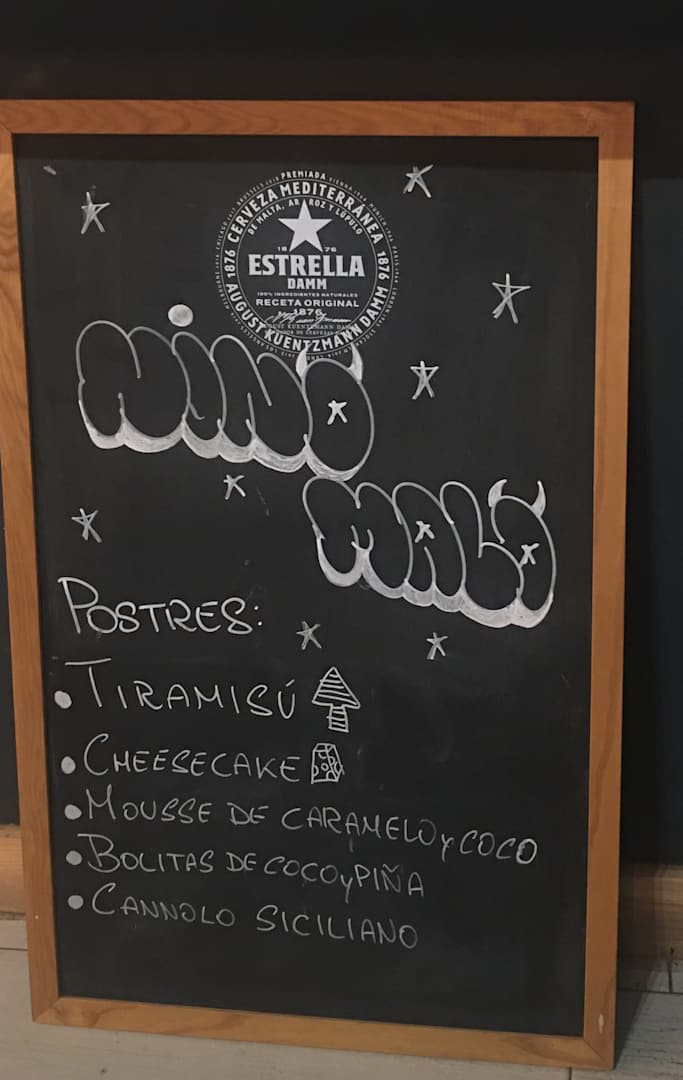 PREMIADA
CERVEZA MEDITERRÁNEA
DE MALTA, ARROZ Y LÚPULO
1876
1876
18 76
ESTRELLA
DAMM
100% INGREDIENTES NATURALES
RECETA ORIGINAL
1876
AUGUST KUENTZMANN DAMM
NINO
MALO
POSTRES:
• TIRAMISÚ
• CHEESECAKE
• MOUSSE DE CARAMELO y COCO
• BOLITAS DE COCO y PIÑA
• CANNOLO SICILIANO